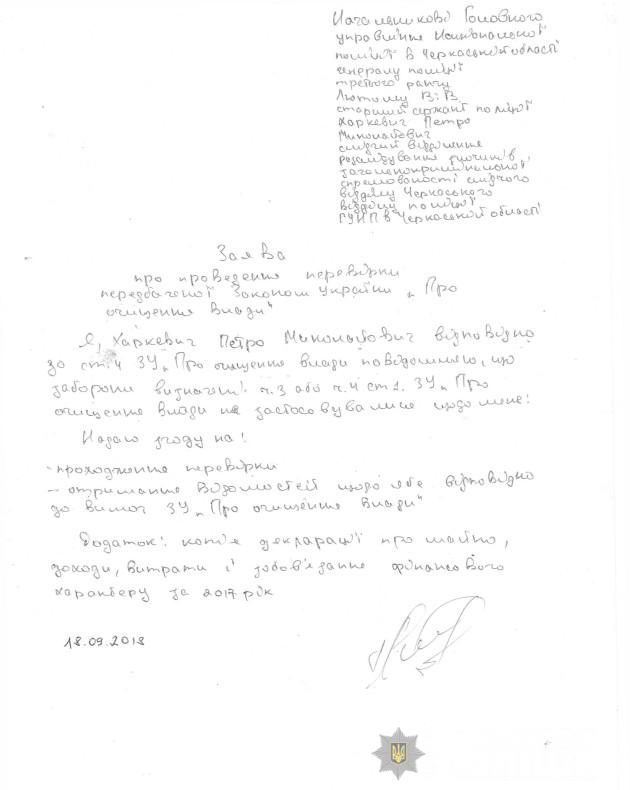 Начальникові Головного
управління Національної
поліції в Черкаській області
генералу поліції
третього рангу
Лютому В.В.
старший сержант поліції
Харкевич Петро
Миколайович
слідчий відділення
розслідування злочинів
загальнокримінальної
спрямованості слідчого
відділу Черкаського
відділу поліції
ГУНП в Черкаській області
Заява
про проведення перевірки
передбаченої Законом України „Про
очищення влади"
Я, Харкевич Петро Миколайович відповідно
до ст. 4 ЗУ „Про очищення влади повідомляю, що
заборони визначені ч.3 або ч.4 ст 1. ЗУ „Про
очищення влади не застосовувались щодо мене:
Надаю згоду на:
- проходження перевірки
- отримання відомостей щодо себе відповідно
до вимог ЗУ „Про очищення влади"
Додаток: копія декларації про майно,
доходи, витрати і зобов'язання фінансового
характеру за 2017 рік
18.09.2018